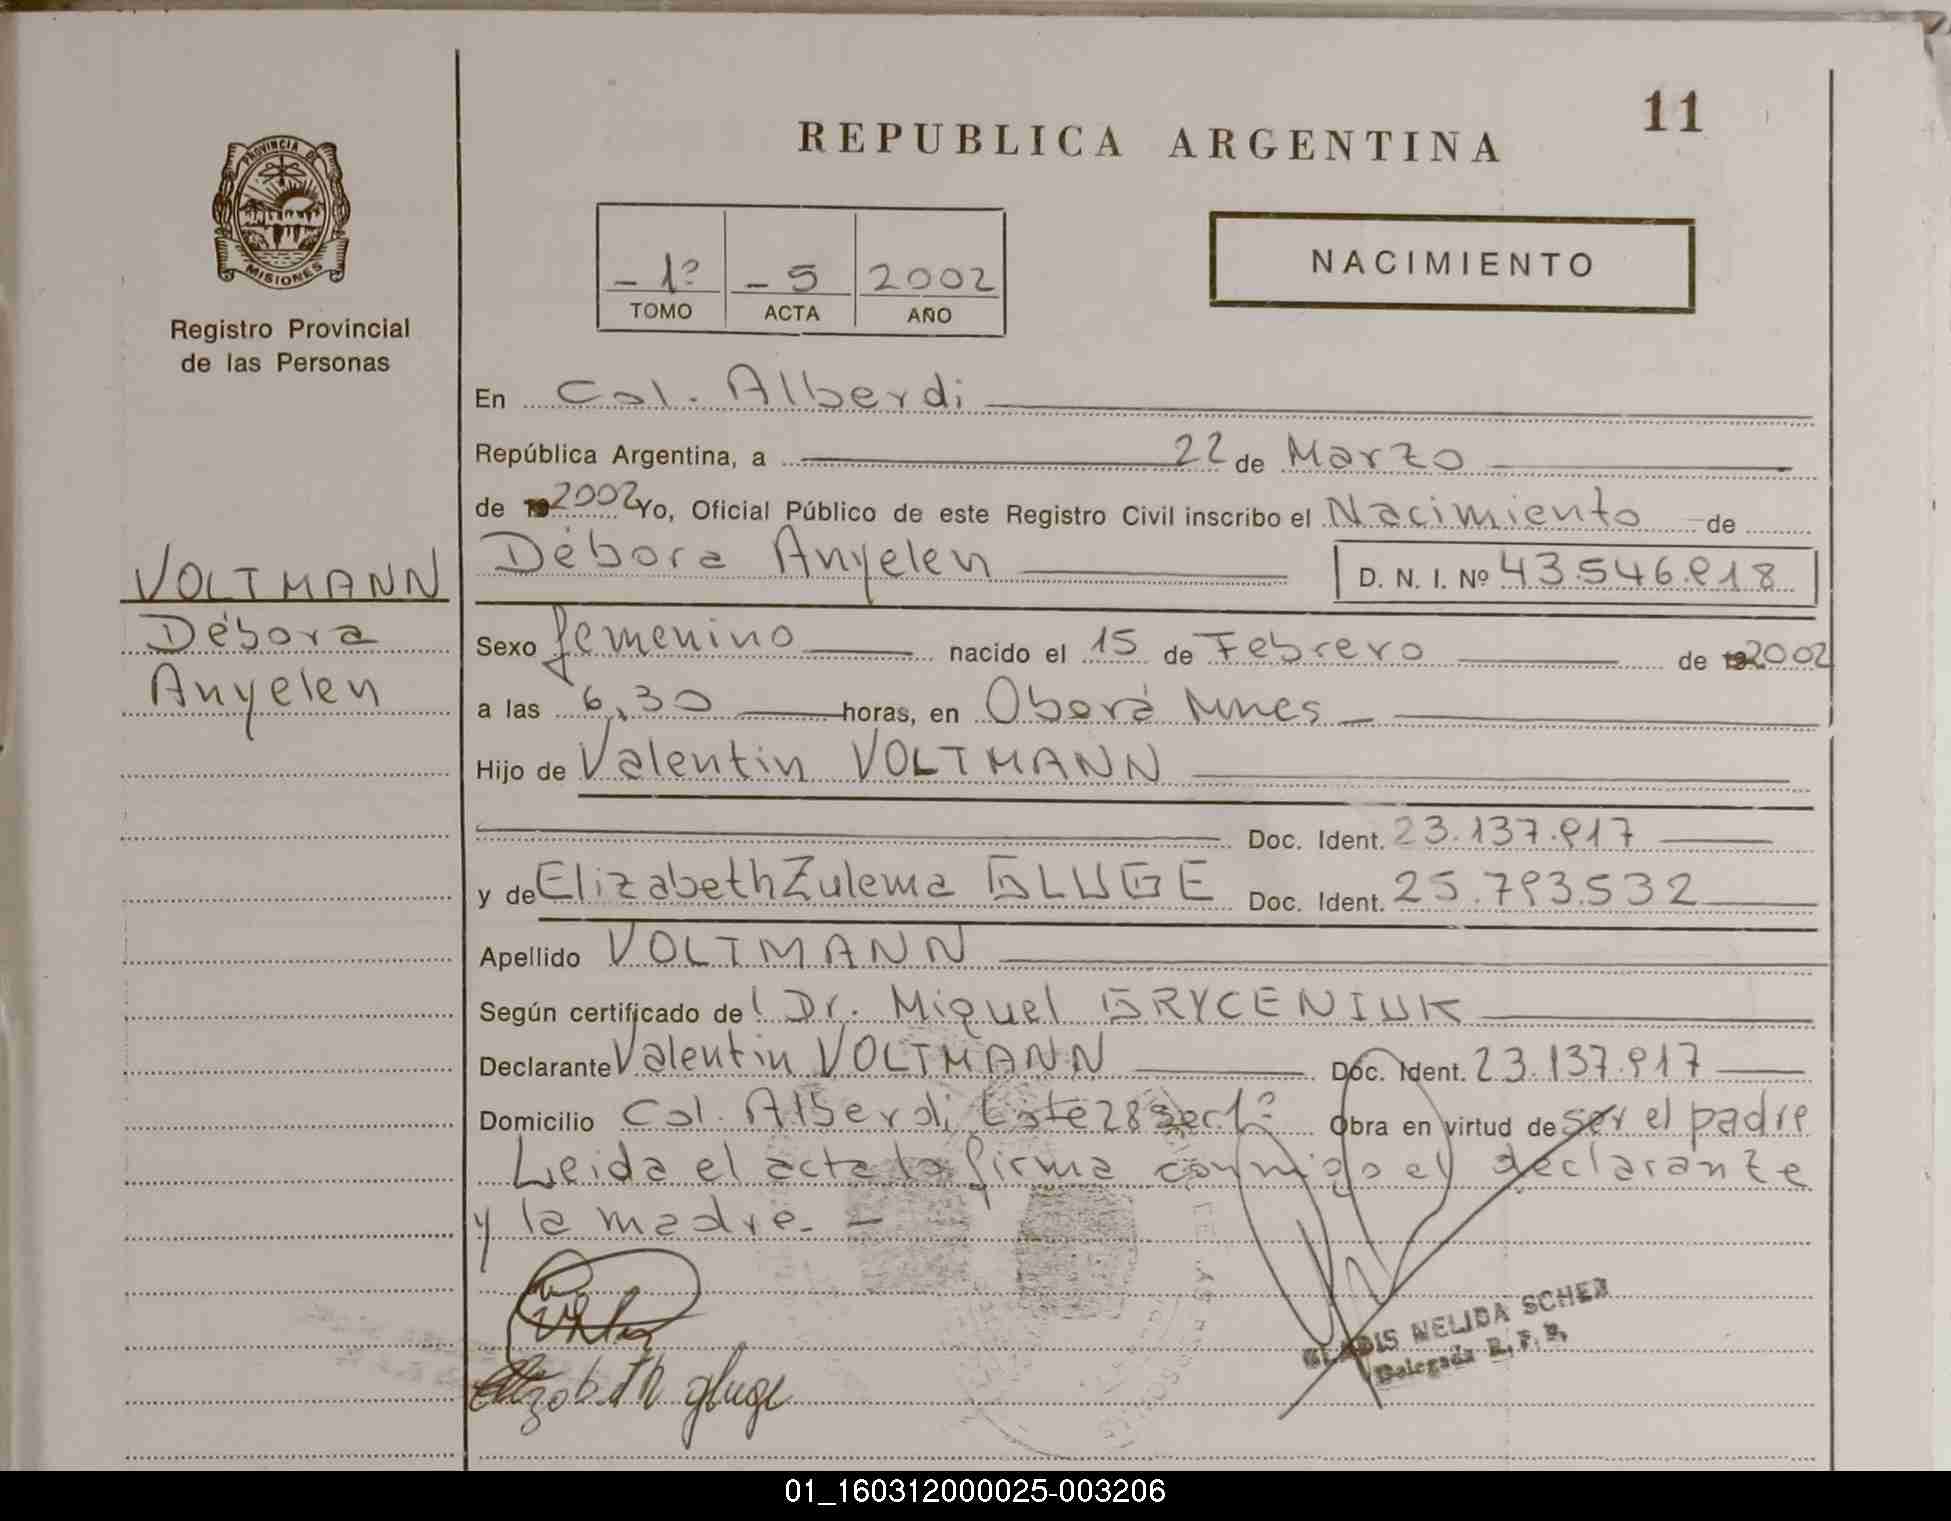 11
REPUBLICA ARGENTINA
PROVINCIA DE
MISIONES
Registro Provincial
de las Personas
- 1º - 5 2002
TOMO ACTA AÑO
NACIMIENTO
En Col. Alberdi
República Argentina, a 22 de Marzo
de 19 2002 Yo, Oficial Público de este Registro Civil inscribo el Nacimiento de
Débora Anyelen D. N. I. Nº 43.546.918
VOLTMANN
Débora
Anyelen
Sexo femenino nacido el 15 de Febrero de 19 2002
a las 6,30 horas, en Oberá Mnes
Hijo de Valentin VOLTMANN
Doc. Ident. 23.137.917
y de Elizabeth Zulema GLUGE Doc. Ident. 25.793.532
Apellido VOLTMANN
Según certificado de Dr. Miguel GRYCENIUK
Declarante Valentin VOLTMANN Doc. Ident. 23.137.917
Domicilio Col. Alberdi Lote 28 sec 1º Obra en virtud de ser el padre
Leida el acta la firma conmigo el declarante
y la madre. -
Elizabeth gluge
GLADIS NELIDA SCHER
Delegada R. P. P.
01_160312000025-003206